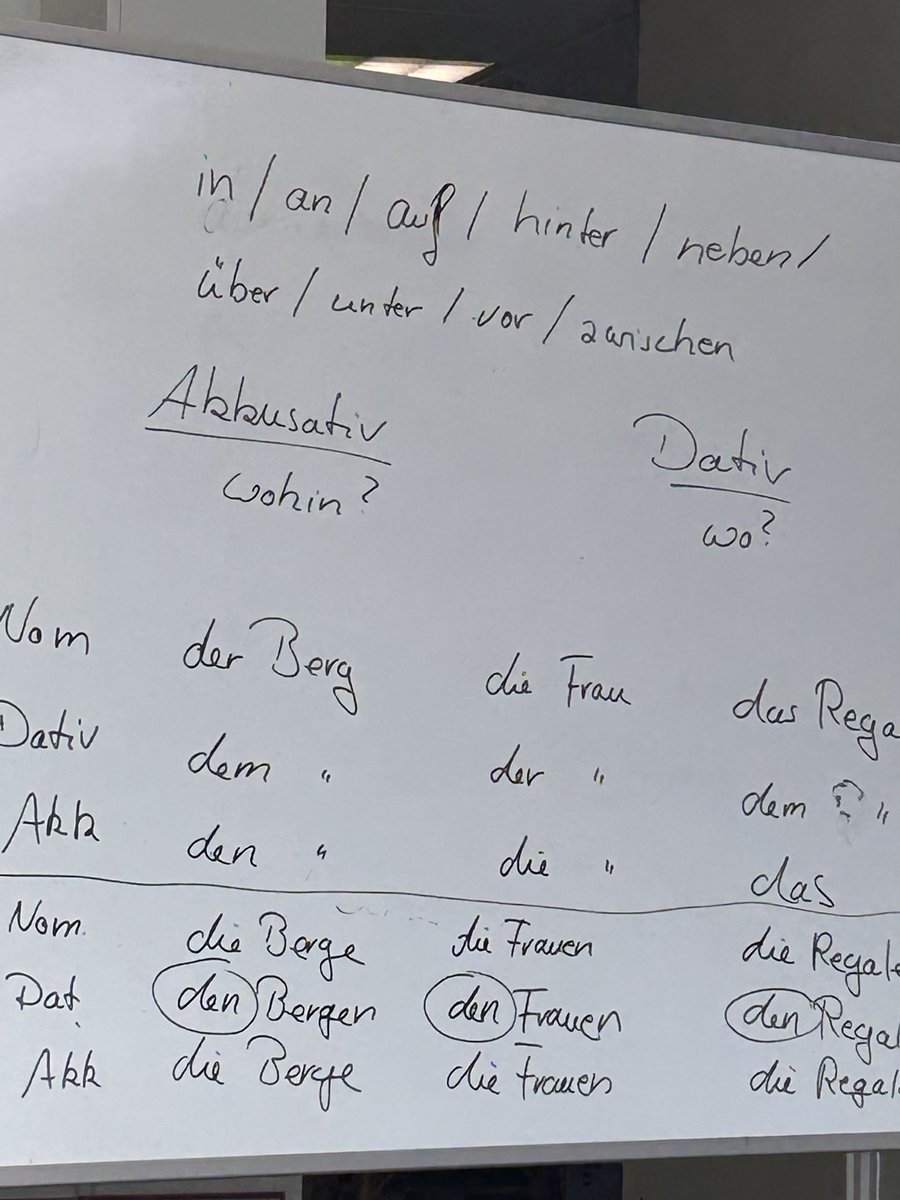 in / an / auf / hinter / neben /
über / unter / vor / zwischen
Akkusativ Dativ
wohin? wo?
Nom der Berg die Frau das Rega
Dativ dem " der " dem "
Akk den " die " das
Nom. die Berge die Frauen die Regale
Dat. den Bergen den Frauen den Regal
Akk die Berge die Frauen die Regal